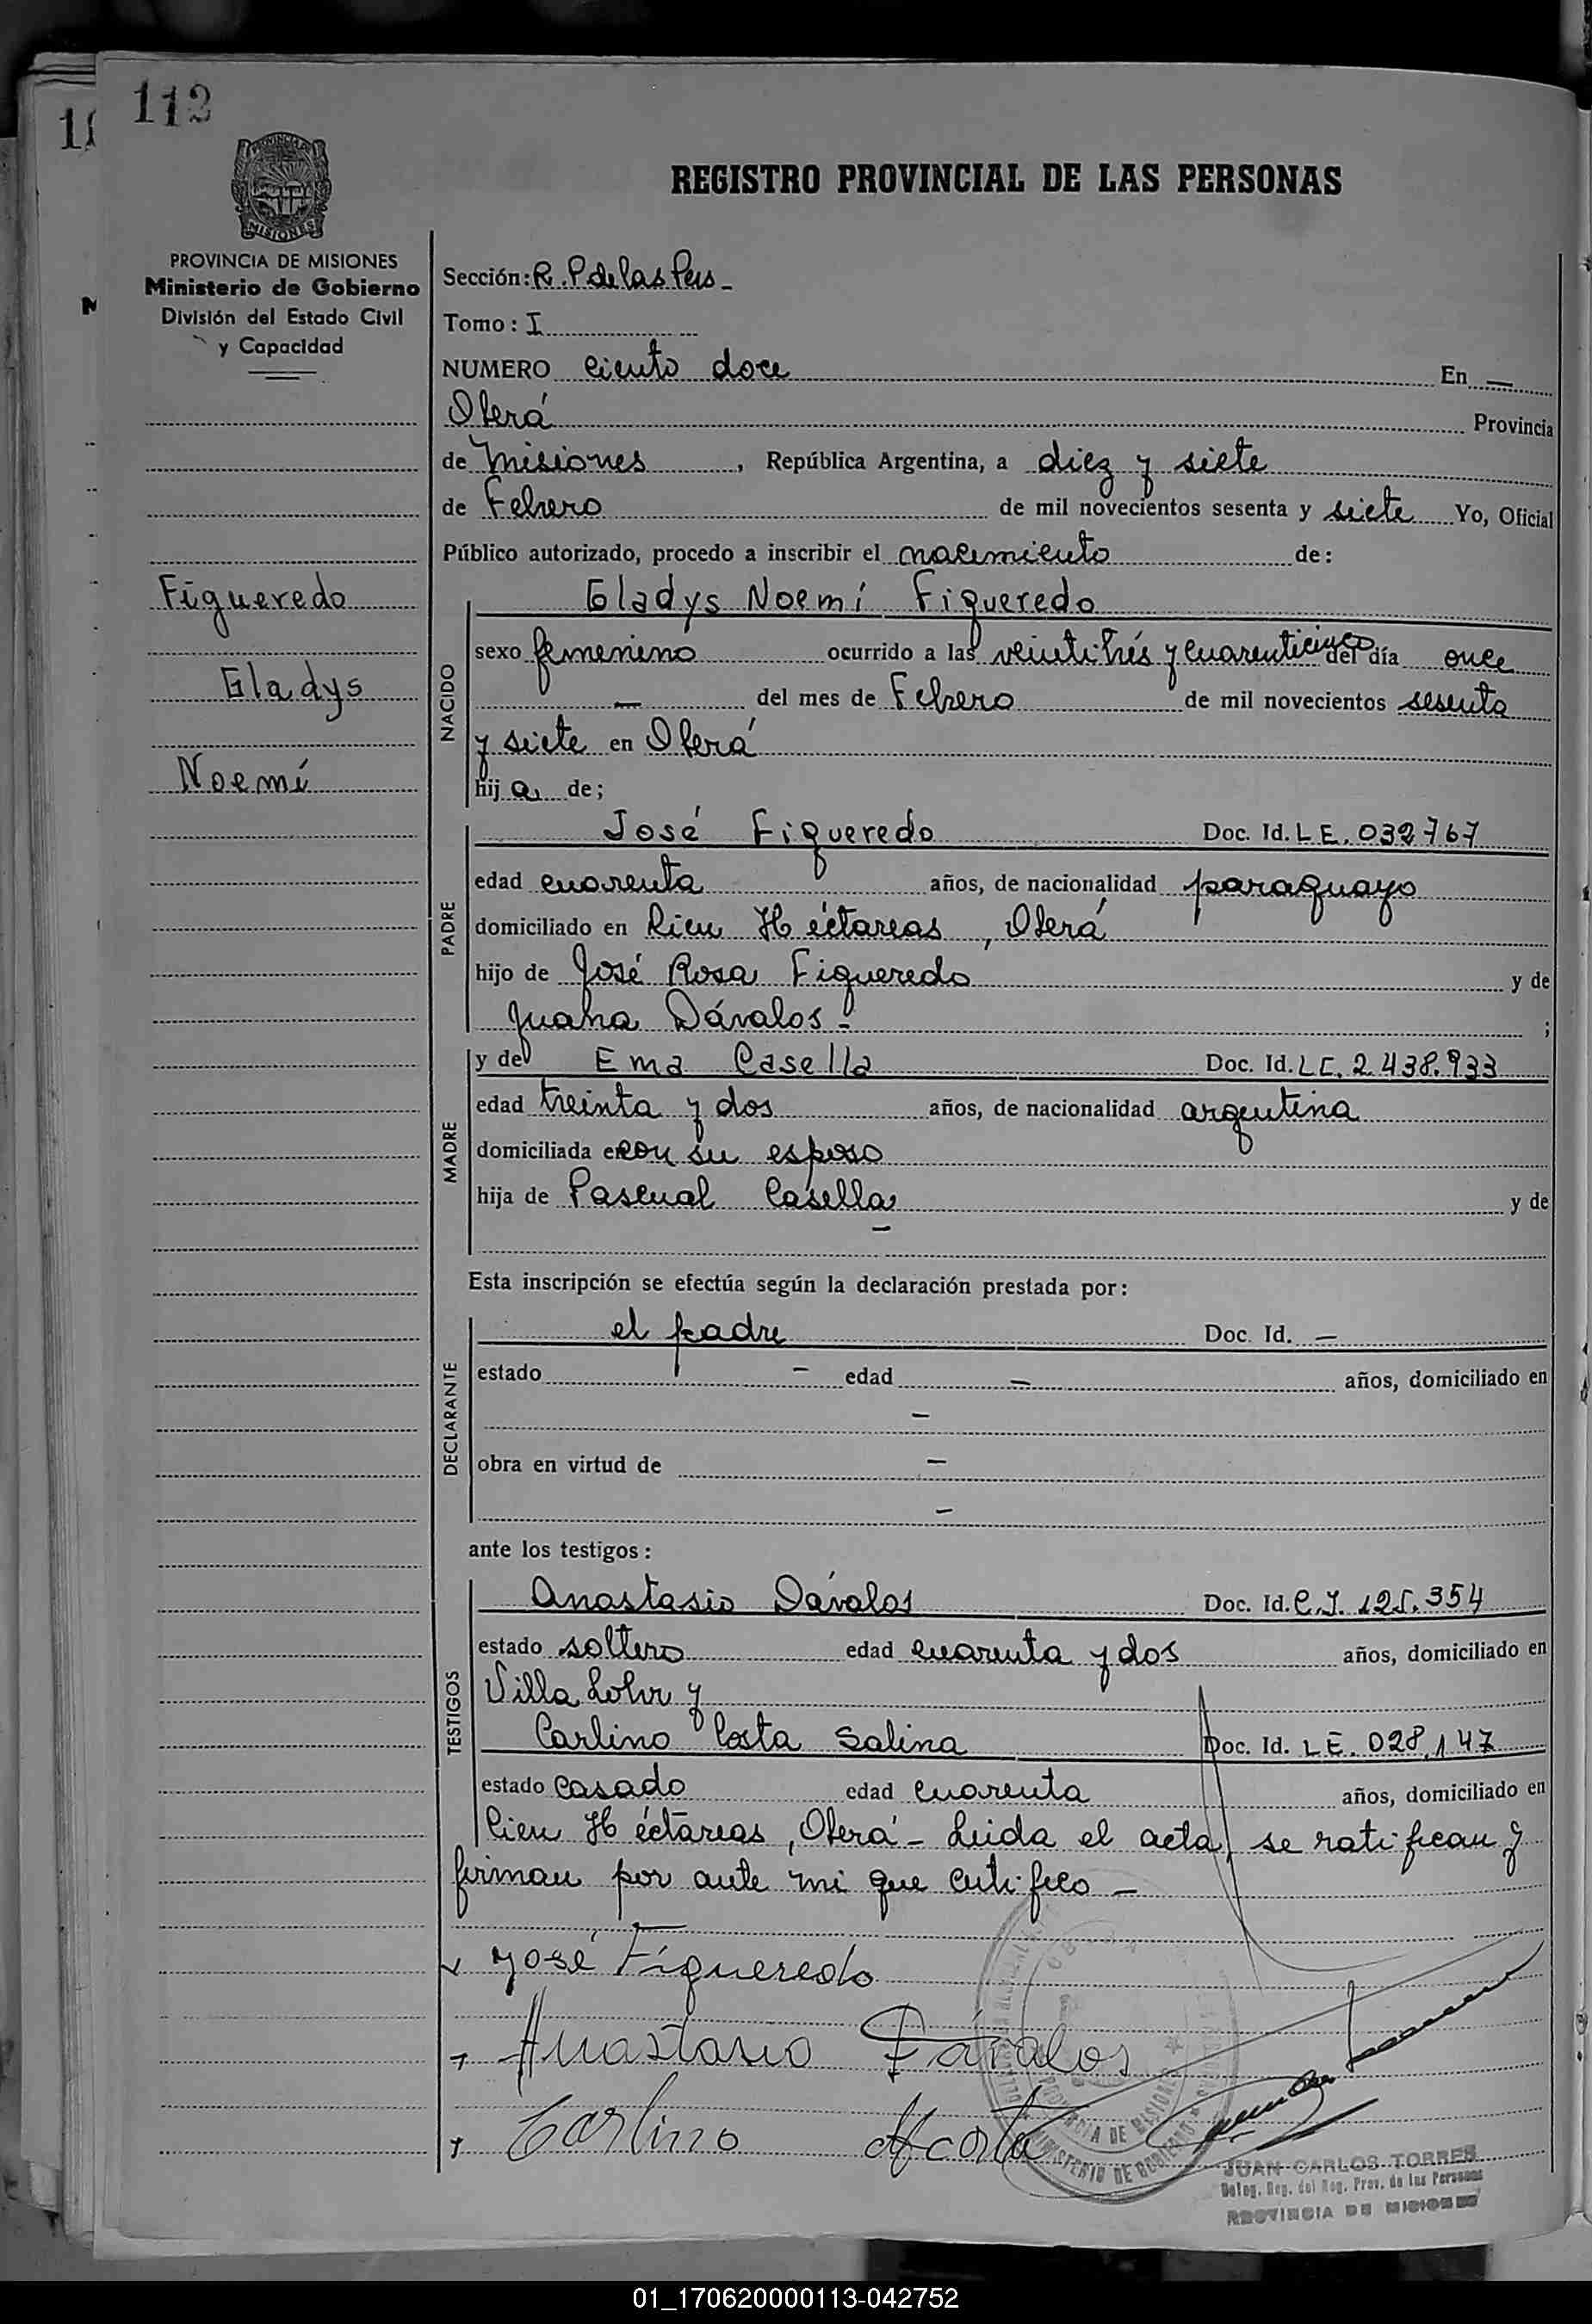 112
PROVINCIA DE MISIONES
Ministerio de Gobierno
División del Estado Civil
y Capacidad
Figueredo
Gladys
Noemí
REGISTRO PROVINCIAL DE LAS PERSONAS
Sección: R. P. de las Pers -
Tomo: I
NUMERO ciento doce En —
Oberá Provincia
de Misiones, República Argentina, a diez y siete
de Febrero de mil novecientos sesenta y siete Yo, Oficial
Público autorizado, procedo a inscribir el nacimiento de:
Gladys Noemí Figueredo
NACIDO
sexo femenino ocurrido a las veintitrés y cuarenticinco del día once
— del mes de Febrero de mil novecientos sesenta
y siete en Oberá
hija de;
José Figueredo Doc. Id. L E. 032767
PADRE
edad cuarenta años, de nacionalidad paraguayo
domiciliado en Cien Héctareas, Oberá
hijo de José Rosa Figueredo y de
Juana Dávalos - ;
y de Ema Casella Doc. Id. L C. 2.438.933
MADRE
edad treinta y dos años, de nacionalidad argentina
domiciliada en con su esposo
hija de Pascual Casella y de
—
Esta inscripción se efectúa según la declaración prestada por:
el padre Doc. Id. —
DECLARANTE
estado — edad — años, domiciliado en
—
obra en virtud de —
—
ante los testigos:
Anastasio Dávalos Doc. Id. C.I. 125.354
TESTIGOS
estado soltero edad cuarenta y dos años, domiciliado en
Villa Lohr y
Carlino Costa Salina Doc. Id. L E. 028.147
estado casado edad cuarenta años, domiciliado en
Cien Héctareas, Oberá - Leida el acta, se ratifican y
firman por ante mi que certifico —
José Figueredo
Anastasio Dávalos
Carlino Acosta
PROVINCIA DE MISIONES
MINISTERIO DE GOBIERNO
JUAN CARLOS TORRES
Deleg. Reg. del Reg. Prov. de las Personas
PROVINCIA DE MISIONES
01_170620000113-042752